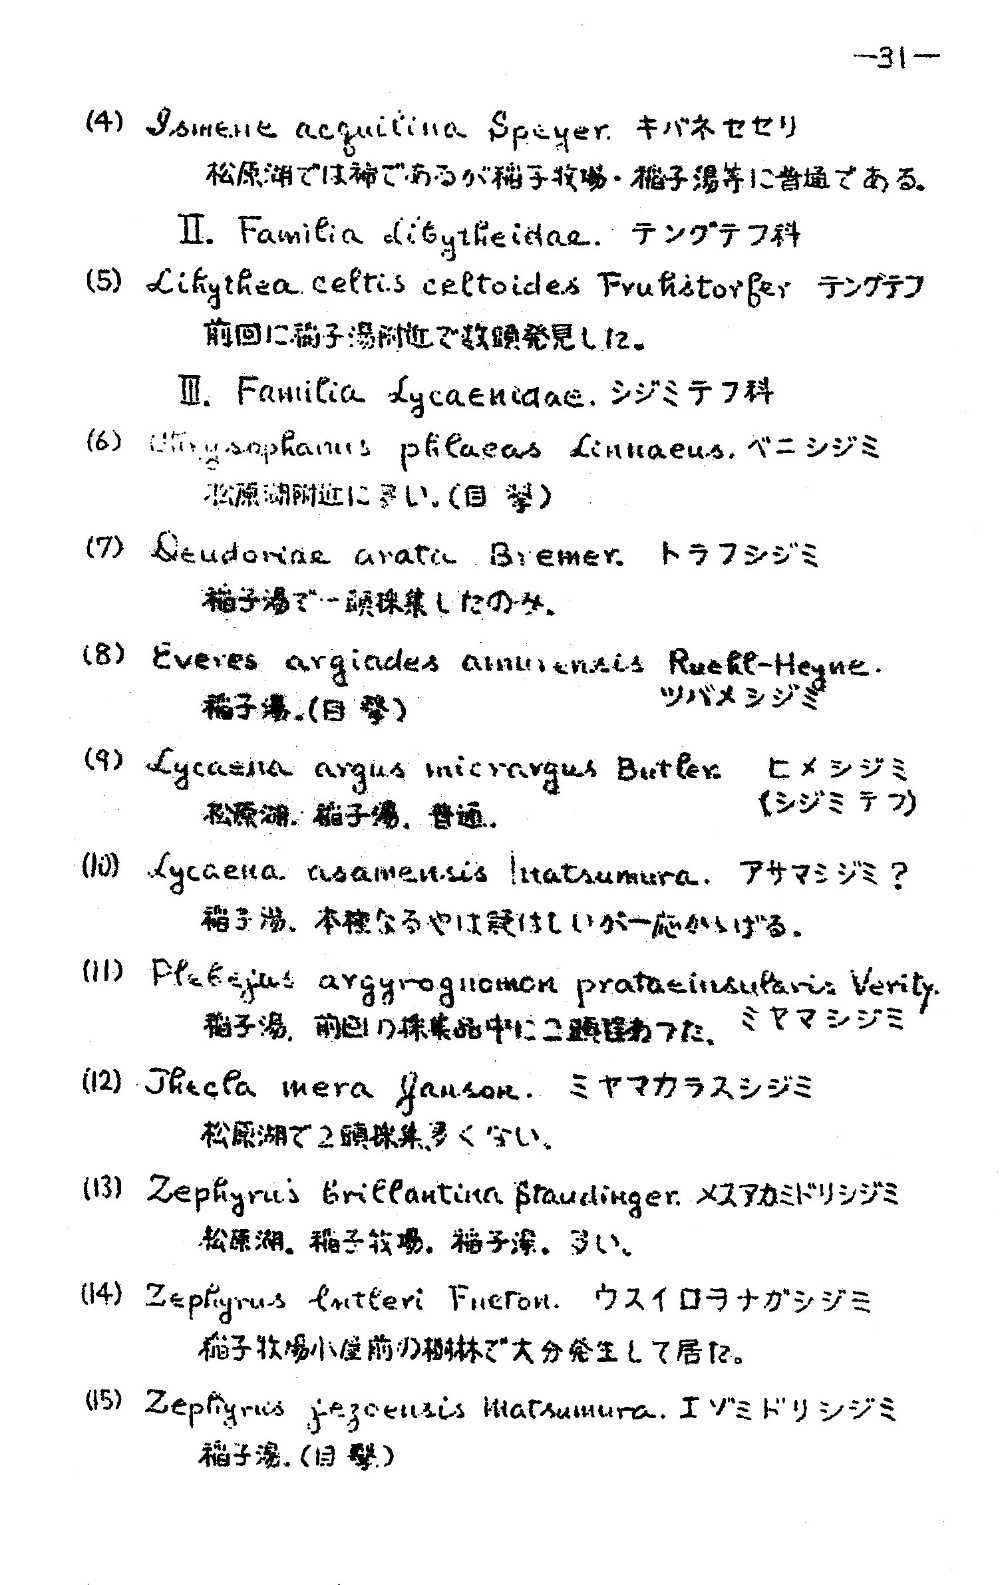 —31—
(4) Ismene acquilina Speyer. キバネセセリ
松原湖では稀であるが稲子牧場・稲子湯等に普通である。
II. Familia Libytheidae. テングテフ科
(5) Libythea celtis celtoides Fruhstorfer テングテフ
前回に稲子湯附近で数頭発見した。
III. Familia Lycaenidae. シジミテフ科
(6) Chrysophanus phlaeas Linnaeus. ベニシジミ
松原湖附近に多い。(目撃)
(7) Deudorixe arata Bremer. トラフシジミ
稲子湯で一頭採集したのみ。
(8) Everes argiades amurensis Ruehl-Heyne.
ツバメシジミ
稲子湯。(目撃)
(9) Lycaena argus micrargus Butler. ヒメシジミ
(シジミテフ)
松原湖. 稲子湯. 普通.
(10) Lycaena asamensis Matsumura. アサマシジミ?
稲子湯. 本種なるやは疑はしいが一応かゝげる.
(11) Plebejus argyrognomon prataeinsularis Verity.
ミヤマシジミ
稲子湯. 前回の採集品中に二頭程あつた.
(12) Thecla mera Janson. ミヤマカラスシジミ
松原湖で2頭採集、多くない、
(13) Zephyrus brillantina Staudinger. メスアカミドリシジミ
松原湖。稲子牧場. 稲子湯. 多い、
(14) Zephyrus butleri Fneton. ウスイロヲナガシジミ
稲子牧場小屋前の樹林で大分発生して居た。
(15) Zephyrus jezoensis Matsumura. エゾミドリシジミ
稲子湯. (目撃)